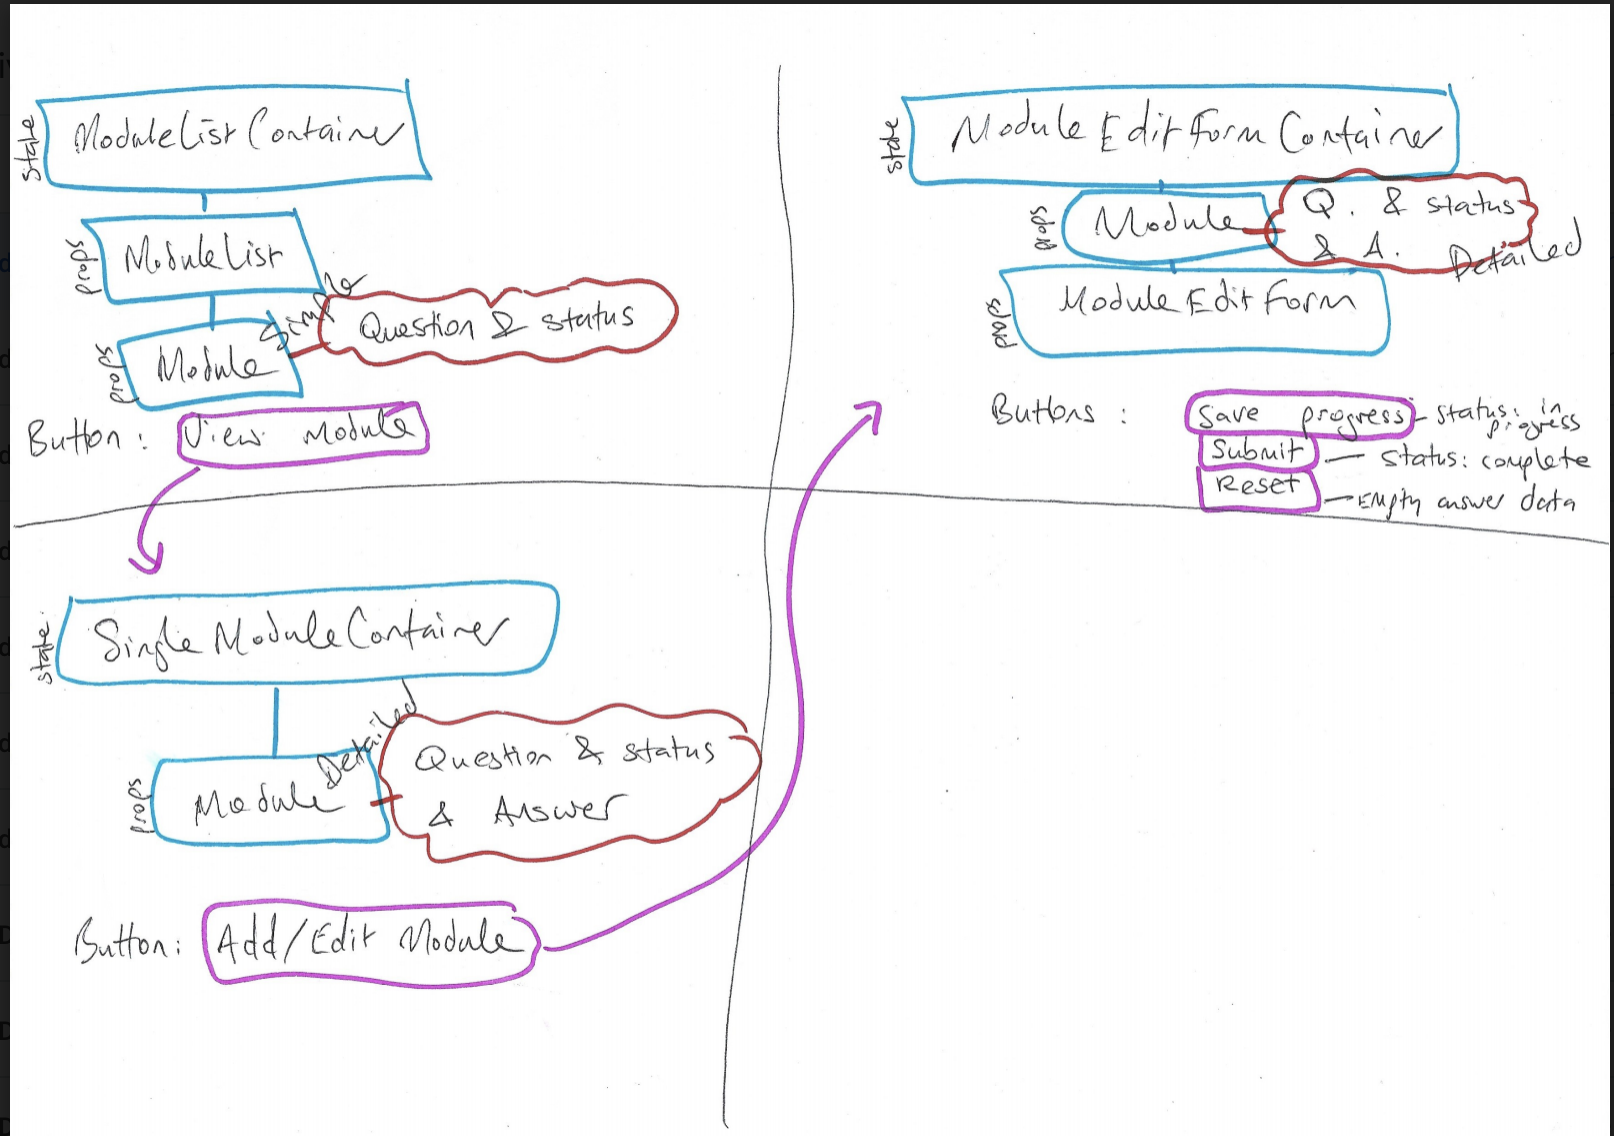 state
ModuleListContainer
props
ModuleList
props
Module
Simple
Question & status
Button: View Module
state
SingleModuleContainer
props
Module
Detailed
Question & status
& Answer
Button: Add/Edit Module
state
Module Edit Form Container
props
Module
Q. & status
& A.
Detailed
props
Module Edit Form
Buttons: Save progress - status: in
progress
Submit — status: complete
Reset — Empty answer data